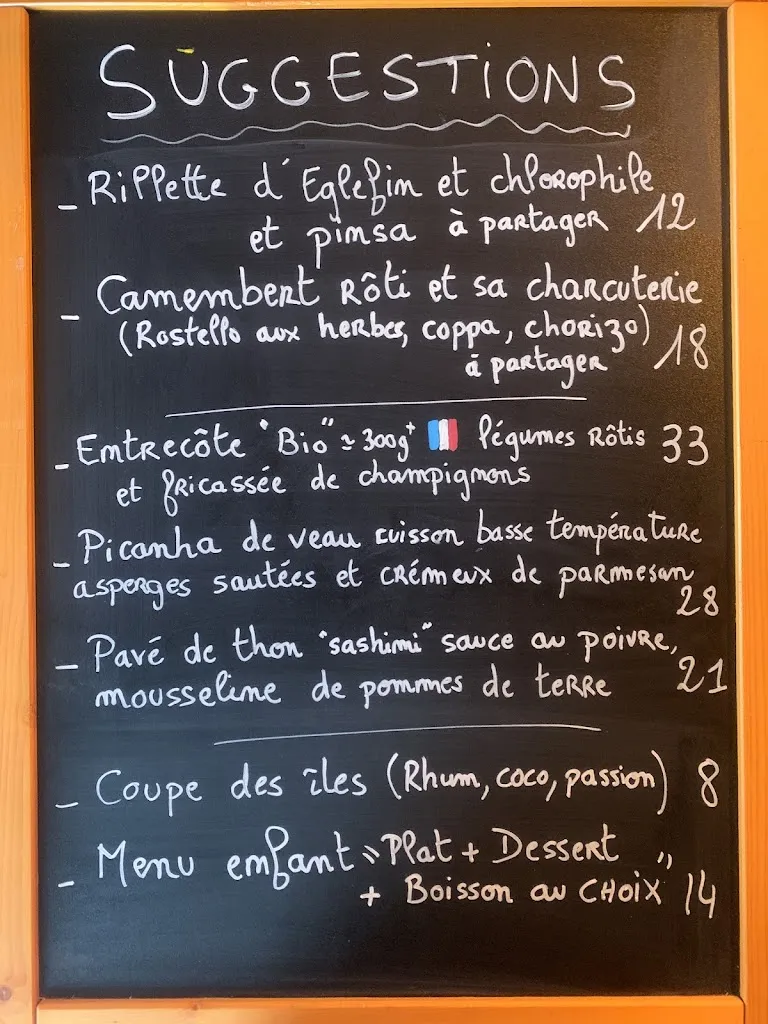 SUGGESTIONS
- Rillette d'Eglefin et chlorophile
et pinsa à partager 12
- Camembert Rôti et sa charcuterie
(Rostello aux herbes, coppa, chorizo) 18
à partager
- Entrecôte "Bio" ≃ 300g+ légumes Rôtis 33
et fricassée de champignons
- Picanha de veau cuisson basse température
asperges sautées et crémeux de parmesan
28
- Pavé de thon "sashimi" sauce au poivre,
mousseline de pommes de terre 21
- Coupe des îles (Rhum, coco, passion) 8
- Menu enfant "Plat + Dessert
+ Boisson au choix" 14